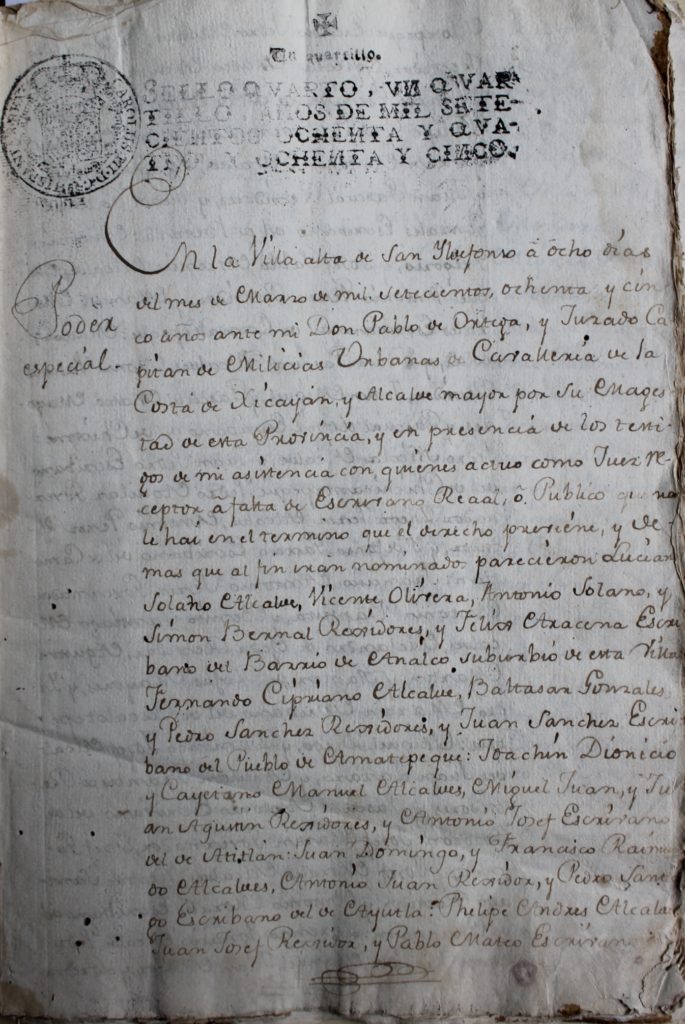 Un quartillo.
SELLO QVARTO, VN QVAR-
TILLO, AÑOS DE MIL SETE-
CIENTOS OCHENTA Y QVA-
TRO, Y OCHENTA Y CINCO.
CAROLUS III D G HISPAN
Poder
especial.
En la Villa alta de San Yldefonso â ôcho dias
del mes de Marzo de mil setecientos, ochenta y cin
co años ante mi Don Pablo de Ortega, y Jurado Ca
pitan de Milicias Urbanas de Cavalleria de la
Costa de Xicayàn, y Alcalde mayor por su Mages
tad de esta Provincia, y en presencia de los testi
gos de mi asistencia con quienes actuo como Juez re
ceptor â falta de Escrivano Reaal, ô Publico que no
le hai en el termino que el derecho previène, y de
mas que al fin iràn nominados parecieron Lucian
Solaño Alcalde, Vicente Olivera, Antonio Solano, y
Simon Bernal Rexidores, y Felix Aracena Escri
bano del Barrio de Analco suburbio de esta Villa
Fernando Cipriano Alcalde, Baltasar Gonzales
y Pedro Sanchez Rexidores, y Juan Sanchez Escri
bano del Pueblo de Amatepeque: Joachin Dionicio
y Cayetano Manuel Alcaldes, Miguel Juan, y Ju
an Agustin Rexidores, y Antonio Josef Escrivano
del de Atitlàn: Juan Domingo, y Francisco Raimun
do Alcaldes, Antonio Juan Rexidor, y Pedro Santi
go Escribano del de Ayutla: Phelipe Andres Alcalde
Juan Josef Rexidor, y Pablo Mateo Escrivano